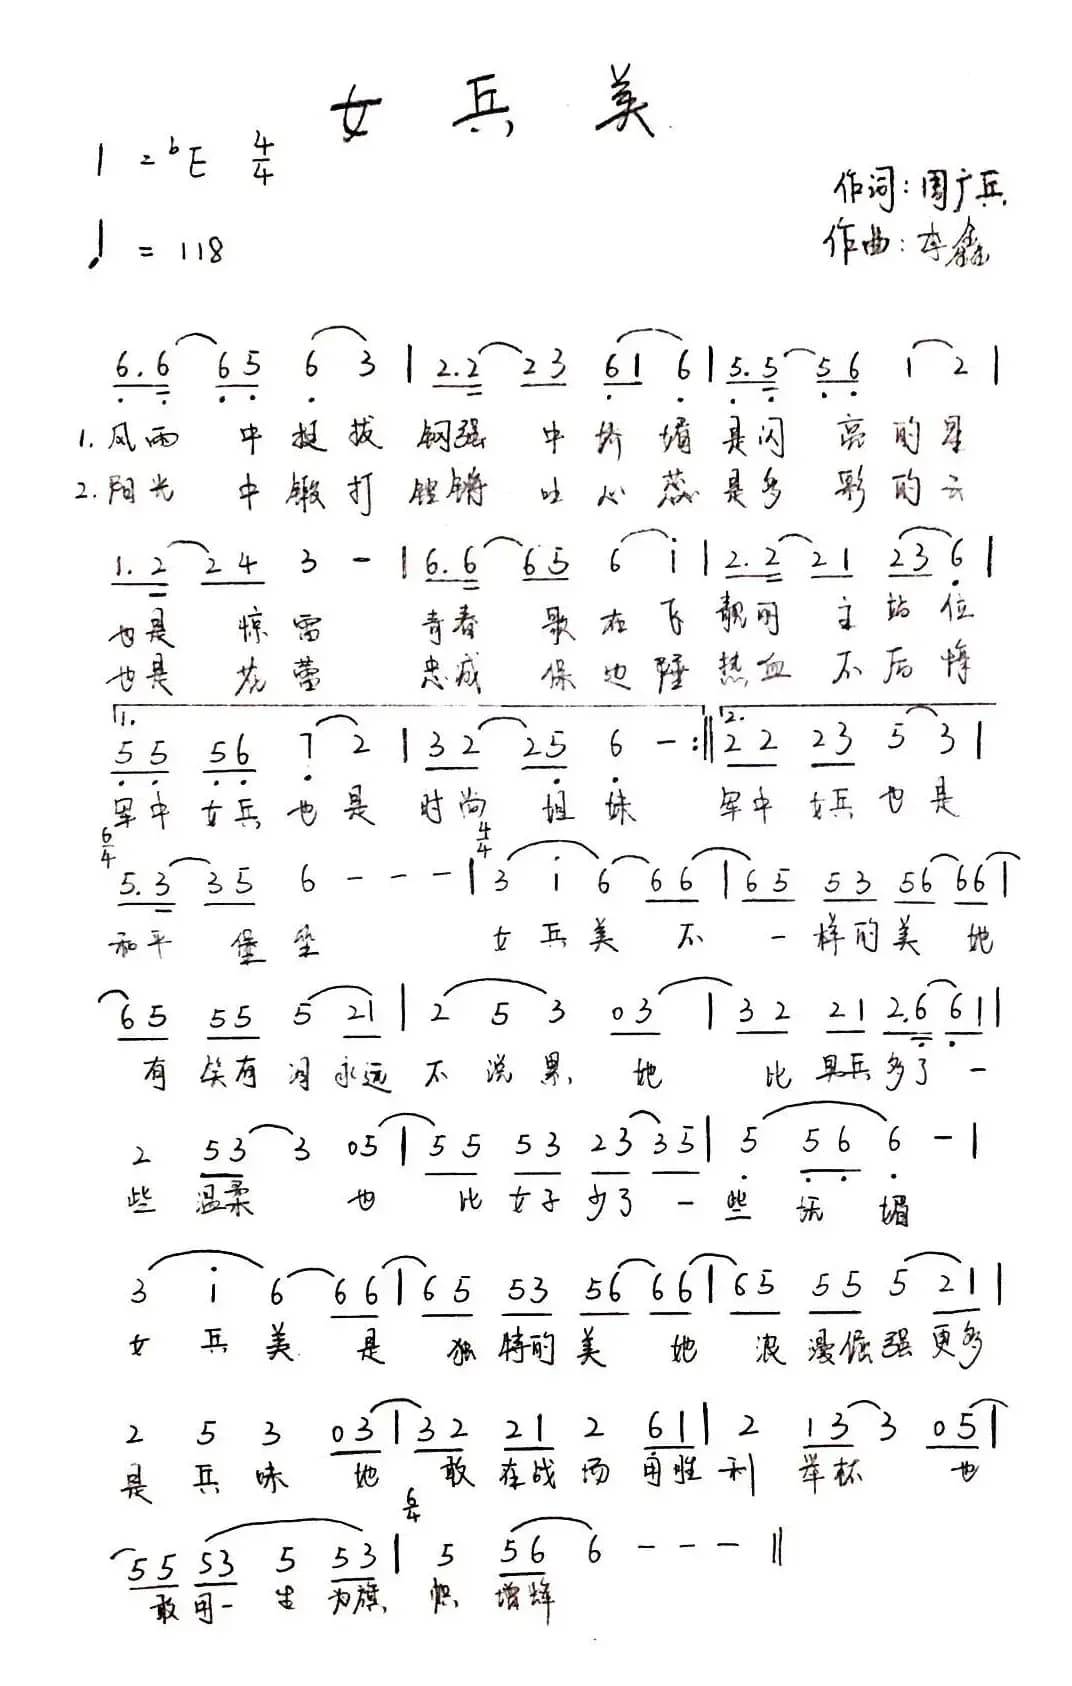 女兵美
1=bE 4/4
作词:周广兵
♩=118
作曲:李鑫
6.6 65 6 3 | 2.2 23 61 6 | 5.5 56 1 2 |
1.风雨 中挺拔 钢强 中娇媚 是闪 亮的星
2.阳光 中锻打 铿锵 吐心蕊 是多 彩的云
1.2 24 3 - | 6.6 65 6 i | 2.2 21 23 6 |
也是 惊雷 青春 歌在飞 靓丽 主站位
也是 花蕾 忠诚 保边陲 热血 不后悔
1. 2.
55 56 7 2 | 32 25 6 - :‖ 22 23 5 3 |
军中 女兵 也是 时尚 姐妹 军中 女兵 也是
6/4 4/4
5.3 35 6 - - - | 3 i 6 66 | 65 53 56 66 |
和平 堡垒 女兵美 不 一样的美 她
65 55 5 21 | 2 5 3 03 | 32 21 2.6 61 |
有 笑有泪 永远 不说累 她 比男兵多了一
2 53 3 05 | 55 53 23 35 | 5 56 6 - |
些 温柔 也 比女子少了一些妩媚
3 i 6 66 | 65 53 56 66 | 65 55 5 21 |
女兵美 是 独特的美 她 浪漫倔强更多
2 5 3 03 | 32 21 2 61 | 2 13 3 05 |
是兵味 她 敢在战场用胜利 举杯 也
6/4
55 53 5 53 | 5 56 6 - - - ‖
敢用一生为旗帜 增辉